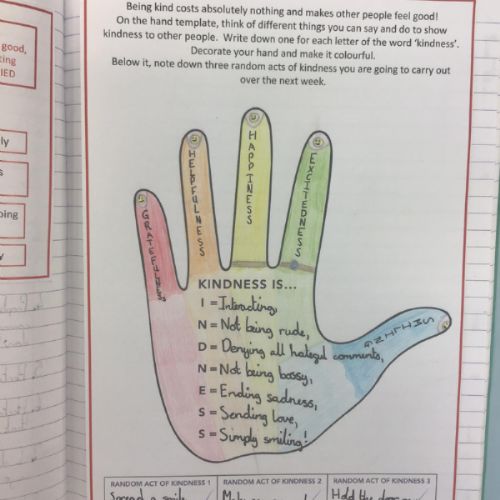 Being kind costs absolutely nothing and makes other people feel good!
On the hand template, think of different things you can say and do to show
kindness to other people. Write down one for each letter of the word 'kindness'.
Decorate your hand and make it colourful.
Below it, note down three random acts of kindness you are going to carry out
over the next week.
good,
IED
ly
s
GRATEFULNESS
HELPFULNESS
HAPPINESS
EXCITEDNESS
KINDNESS IS...
I = Interacting,
N = Not being rude,
D = Denying all hateful comments,
N = Not being bossy,
E = Ending sadness,
S = Sending love,
S = Simply smiling!
RANDOM ACT OF KINDNESS 1
RANDOM ACT OF KINDNESS 2
RANDOM ACT OF KINDNESS 3
Spread a smile
Hold the door